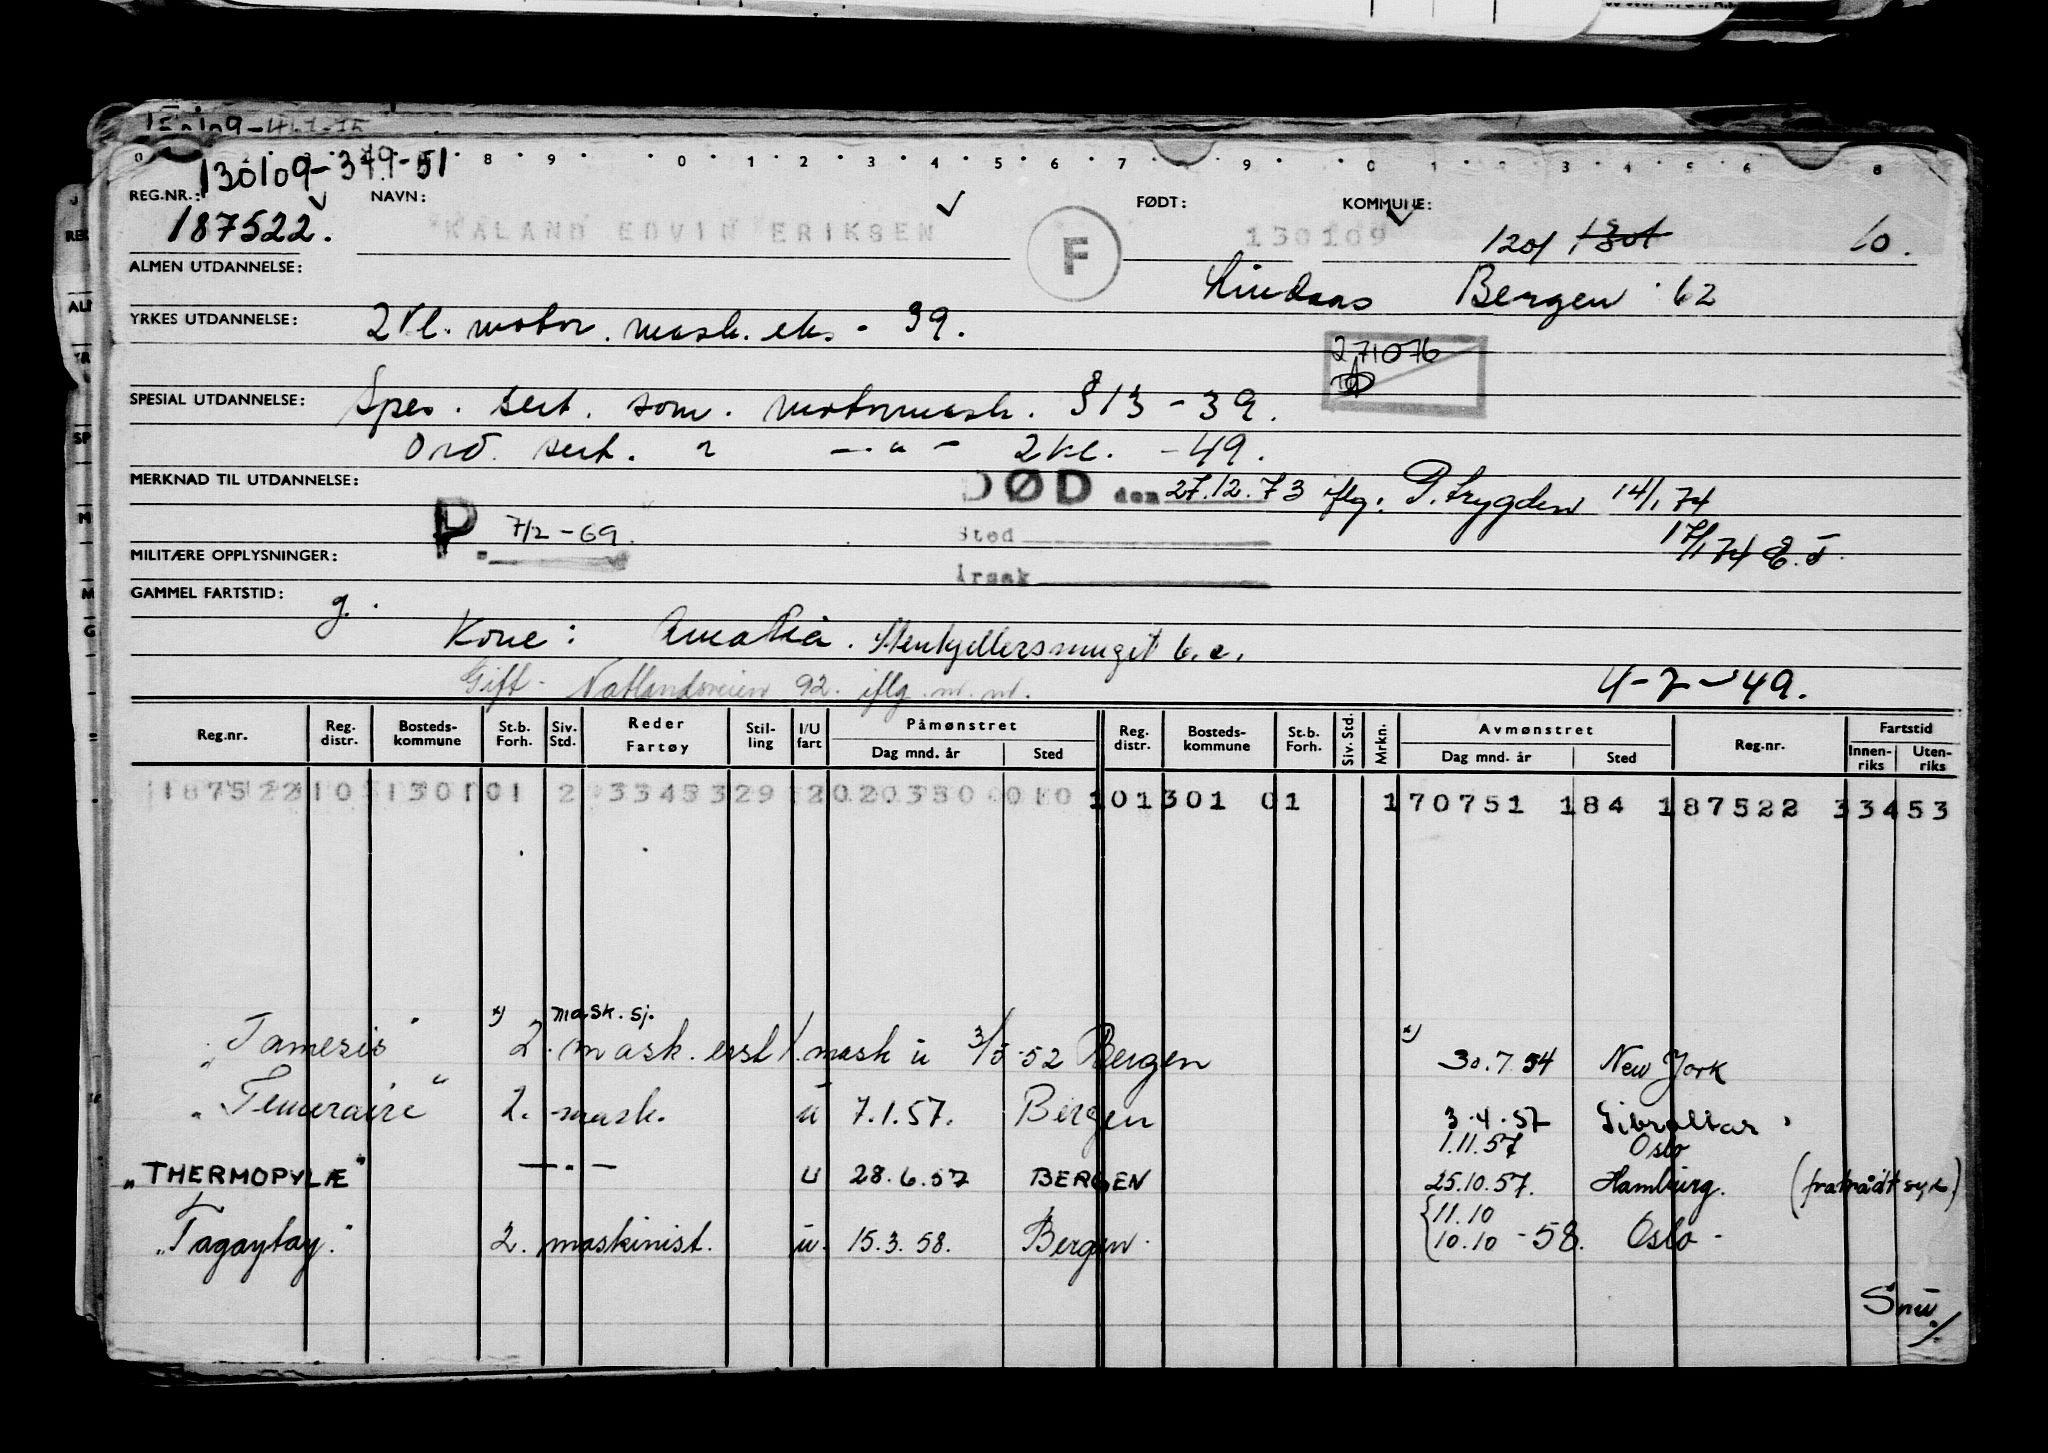 130109-379-51
0 8 9 0 1 2 3 4 5 6 7 9 0 1 2 3 4 5 6 8
REG.NR.: NAVN: FØDT: KOMMUNE:
187522. KALAND EDVIN ERIKSEN F 130109 1201 1301 10.
ALMEN UTDANNELSE: Lindaas Bergen 62
YRKES UTDANNELSE: 2 kl. motor. mask. eks. - 39.
271076
SPESIAL UTDANNELSE: Spes. sert. som. motormask. §13 - 39.
Ord. sert. " — " — 2 kl. - 49.
MERKNAD TIL UTDANNELSE: DØD den 27.12.73 iflg: P.trygden 14/1 74
P. 7/2 - 69. Sted 17/1 74
MILITÆRE OPPLYSNINGER: Årsak
GAMMEL FARTSTID: g.
Kone: Amalia. Stenkjellersmuget 6.c.
Gift - Natlandsveien 92. iflg. m.m. 4-7-49.
Reg.nr. Reg. distr. Bosteds-kommune St.b. Forh. Siv. Std. Reder Fartøy Stil-ling I/U fart Påmønstret Dag mnd. år Sted Reg. distr. Bosteds-kommune St.b. Forh. Siv. Std. Mrkn. Avmønstret Dag mnd. år Sted Reg.nr. Fartstid Innen-riks Uten-riks
187522 10 1301 01 2 33453 29 2 020350 010 10 1301 01 170751 184 187522 33453
x) mask. sj. x)
"Tamesis" 2. mask. 1. mask u 3/5-52 Bergen 30.7.54 New York
"Temeraire" 2. mask. u 7.1.57. Bergen 3.4.57 Gibraltar
1.11.57 Oslo
"THERMOPYLÆ" — " — U 28.6.57 BERGEN 25.10.57. Hamburg. (fratrådt syk)
"Tagaytay." 2. maskinist. u. 15.3.58. Bergen. {11.10 10.10 - 58. Oslo -
Snu ./.